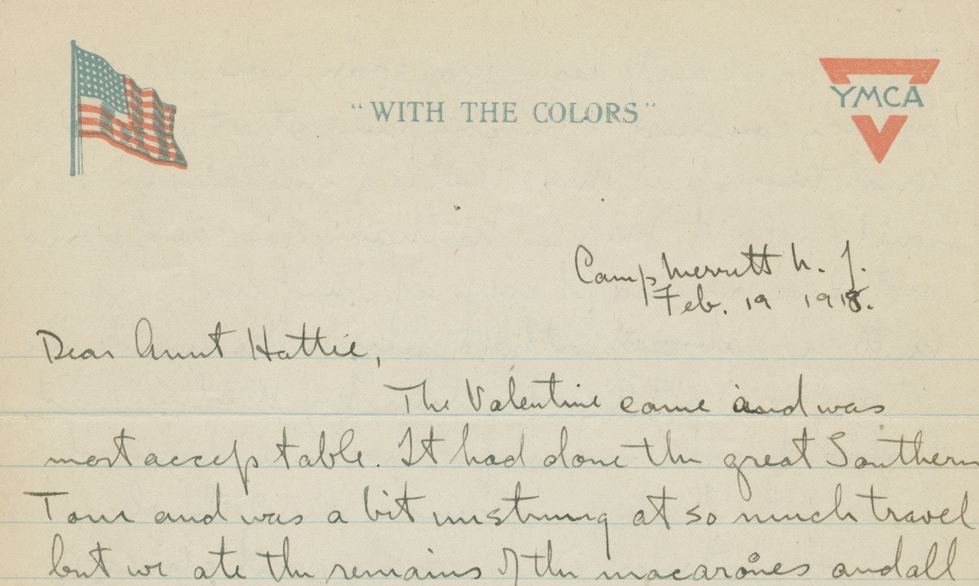 "WITH THE COLORS"
YMCA
Camp Merritt N. J.
Feb. 19 1918.
Dear Aunt Hattie,
The Valentine came and was
most acceptable. It had done the great Southern
Tour and was a bit unstrung at so much travel
but we ate the remains of the macarones and all